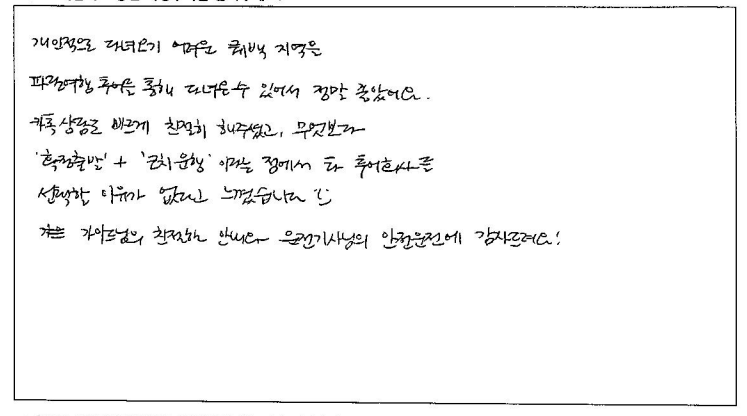 개인적으로 다녀오기 어려운 퀘백 지역을
파란여행 투어를 통해 다녀올 수 있어서 정말 좋았어요.
카톡 상담도 빠르게 친절히 해주셨고, 무엇보다
'확정출발' + '코치운행' 이라는 점에서 타 투어회사를
선택할 이유가 없다고 느꼈습니다
가이드님의 친절한 안내와 운전기사님의 안전운전에 감사드려요!